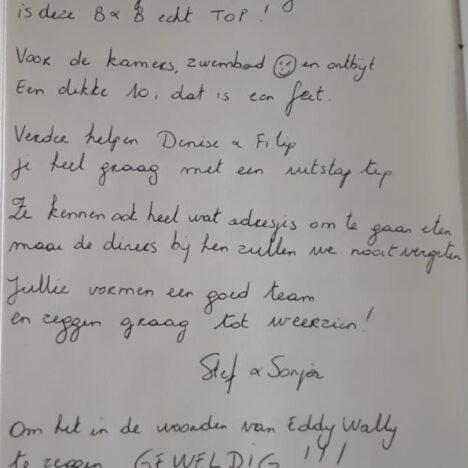 is deze B & B echt TOP !
Voor de kamers, zwembad ☺ en ontbijt
Een dikke 10, dat is een feit.
Verder helpen Denise & Filip
je heel graag met een uitstap tip
Ze kennen ook heel wat adresjes om te gaan eten
maar de diners bij hen zullen we nooit vergeten
Jullie vormen een goed team
en zeggen graag tot weerzien!
Stef & Sonja
Om het in de woorden van Eddy Wally
te zeggen GEWELDIG !!!